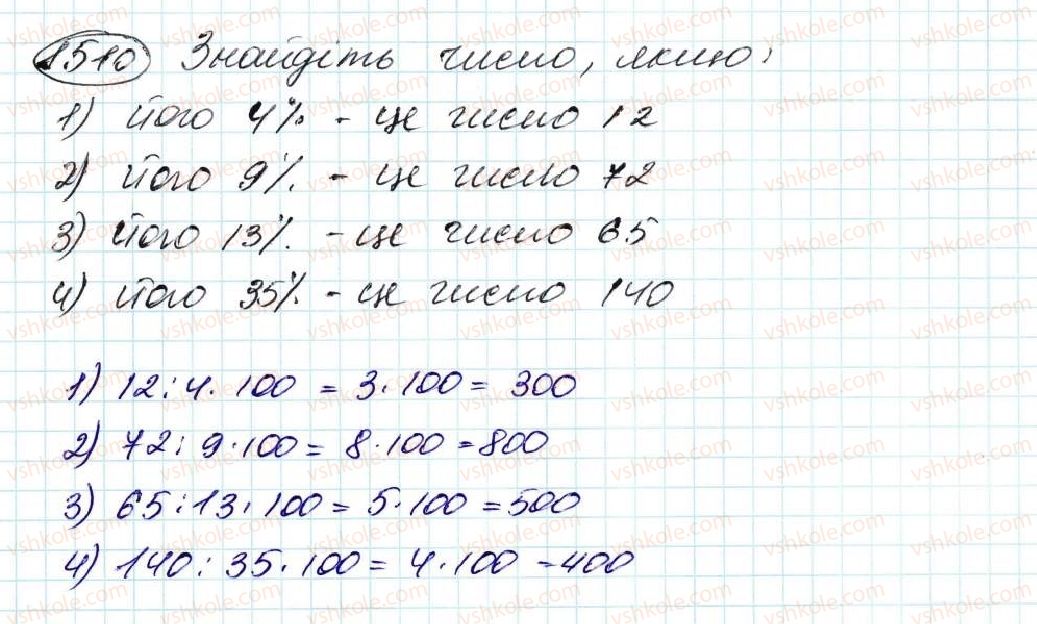 1510 Знайдіть число, якщо:
1) його 4% - це число 12
2) його 9% - це число 72
3) його 13% - це число 65
4) його 35% - це число 140
1) 12 : 4 · 100 = 3 · 100 = 300
2) 72 : 9 · 100 = 8 · 100 = 800
3) 65 : 13 · 100 = 5 · 100 = 500
4) 140 : 35 · 100 = 4 · 100 = 400
vshkole.com